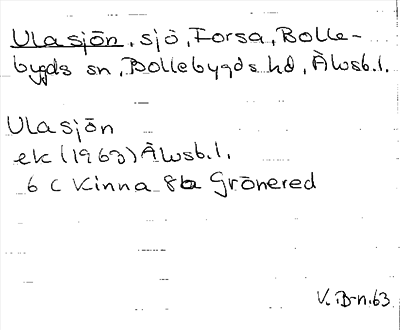 Ulasjön, sjö, Forsa, Bolle-
bygds sn, Bollebygds hd, Älvsb.l.
Ulasjön
ek (1963) Älvsb.l.
6 C Kinna 8b Grönered
V. B-n. 63